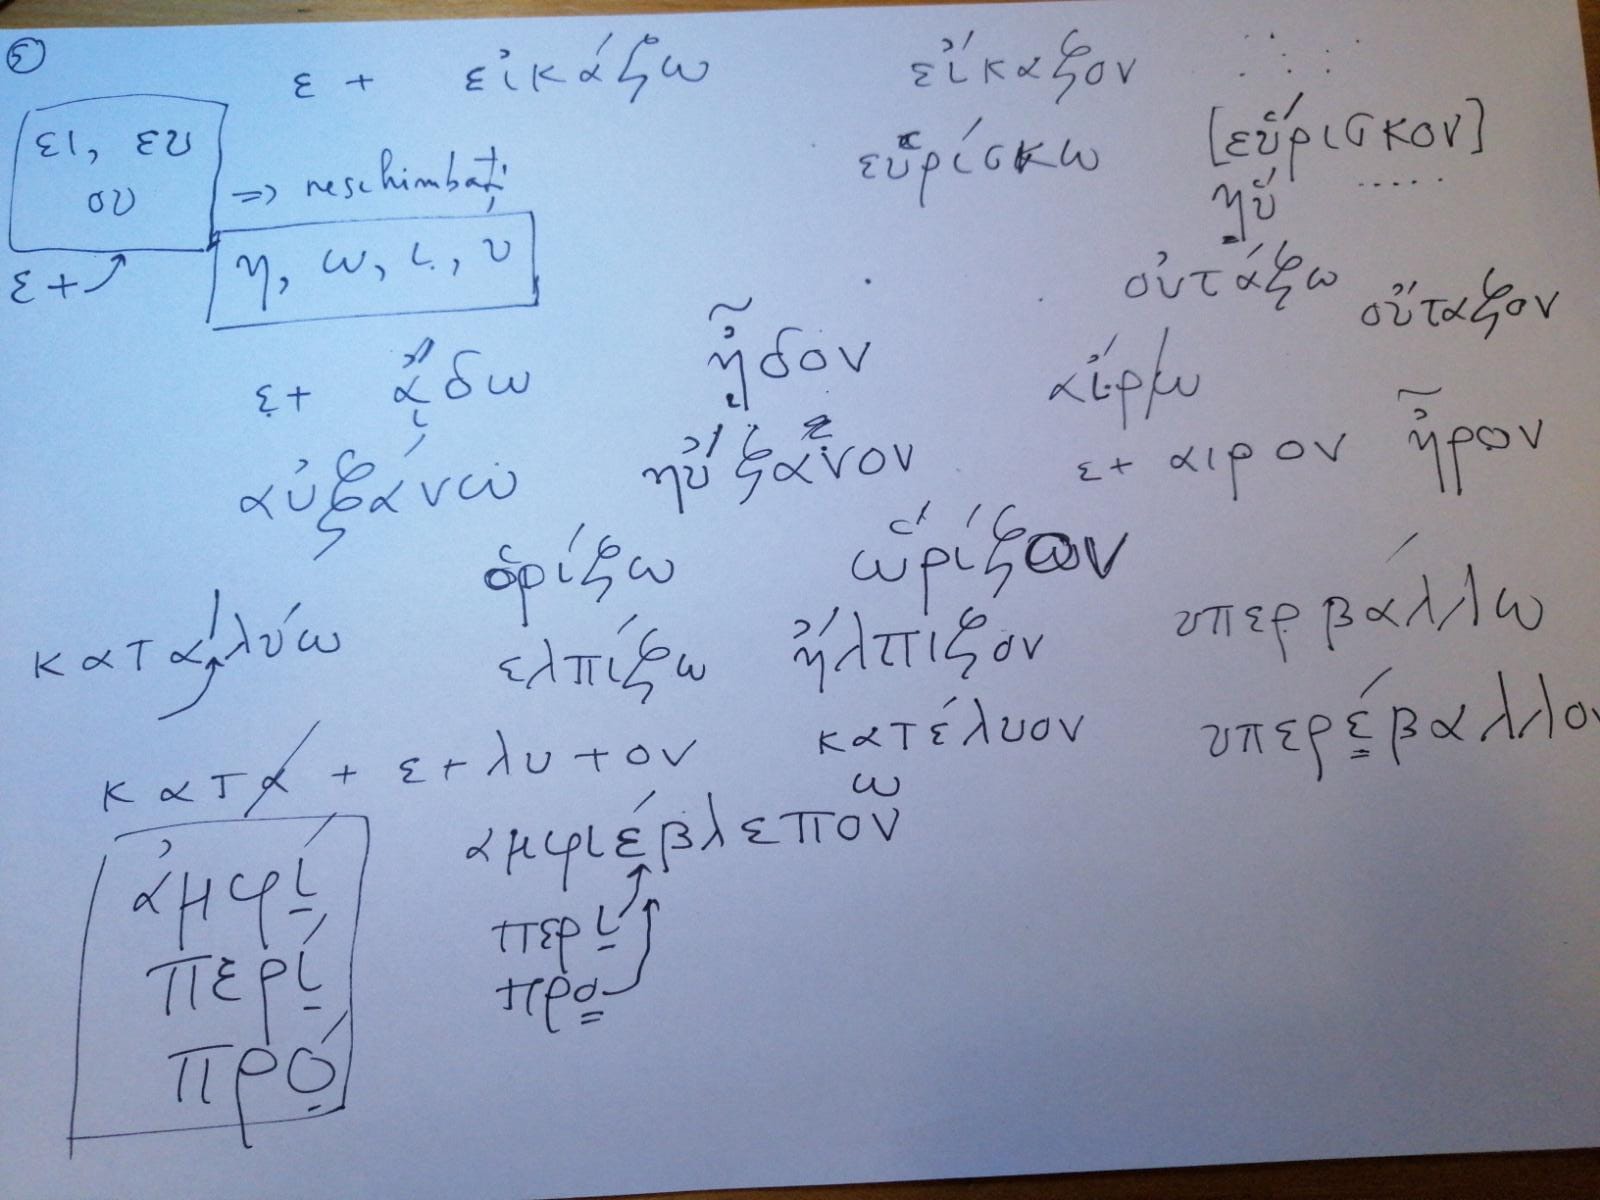 3
ε + εἰκάζω εἴκαζον
ει, ευ
ου => neschimbați
εὑρίσκω [εὕρισκον]
ηὕ .....
ε+ η, ω, ι, υ
οὐτάζω οὔταζον
ε+ ᾄδω ᾖδον αἴρω
αὐξάνω ηὔξανον ε+ αιρον ἦρον
ὁρίζω ὥρίζον
καταλύω ελπίζω ἤλπιζον υπερβάλλω
κατα + ε+λυ+ον κατέλυον υπερέβαλλον
ω
ἀμφί αμφιέβλεπον
περί περι
πρό προ